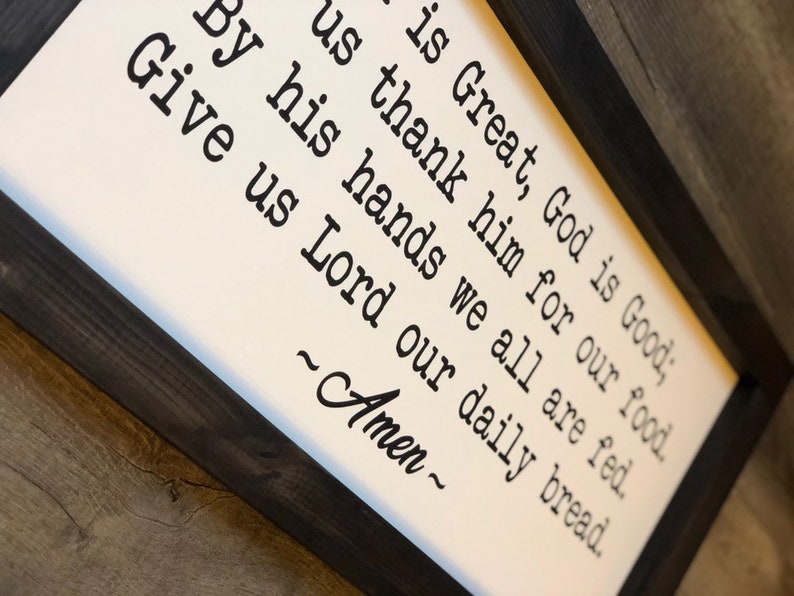 is Great, God is Good;
us thank him for our food.
By his hands we all are fed.
Give us Lord our daily bread.
~Amen~